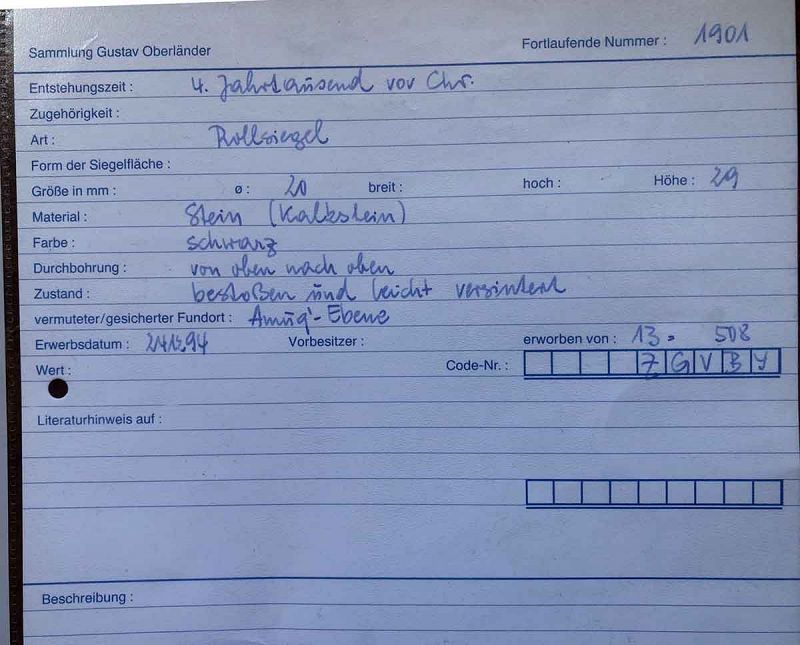 Sammlung Gustav Oberländer Fortlaufende Nummer : 1901
Entstehungszeit : 4. Jahrtausend vor Chr.
Zugehörigkeit :
Art : Rollsiegel
Form der Siegelfläche :
Größe in mm : ø : 20 breit : hoch : Höhe : 29
Material : Stein (Kalkstein)
Farbe : schwarz
Durchbohrung : von oben nach oben
Zustand : bestoßen und leicht versintert
vermuteter/gesicherter Fundort : Amuq-Ebene
Erwerbsdatum : Vorbesitzer : erworben von : 13 = 508
Wert : Code-Nr. : Z G V B Y
Literaturhinweis auf :
Beschreibung :